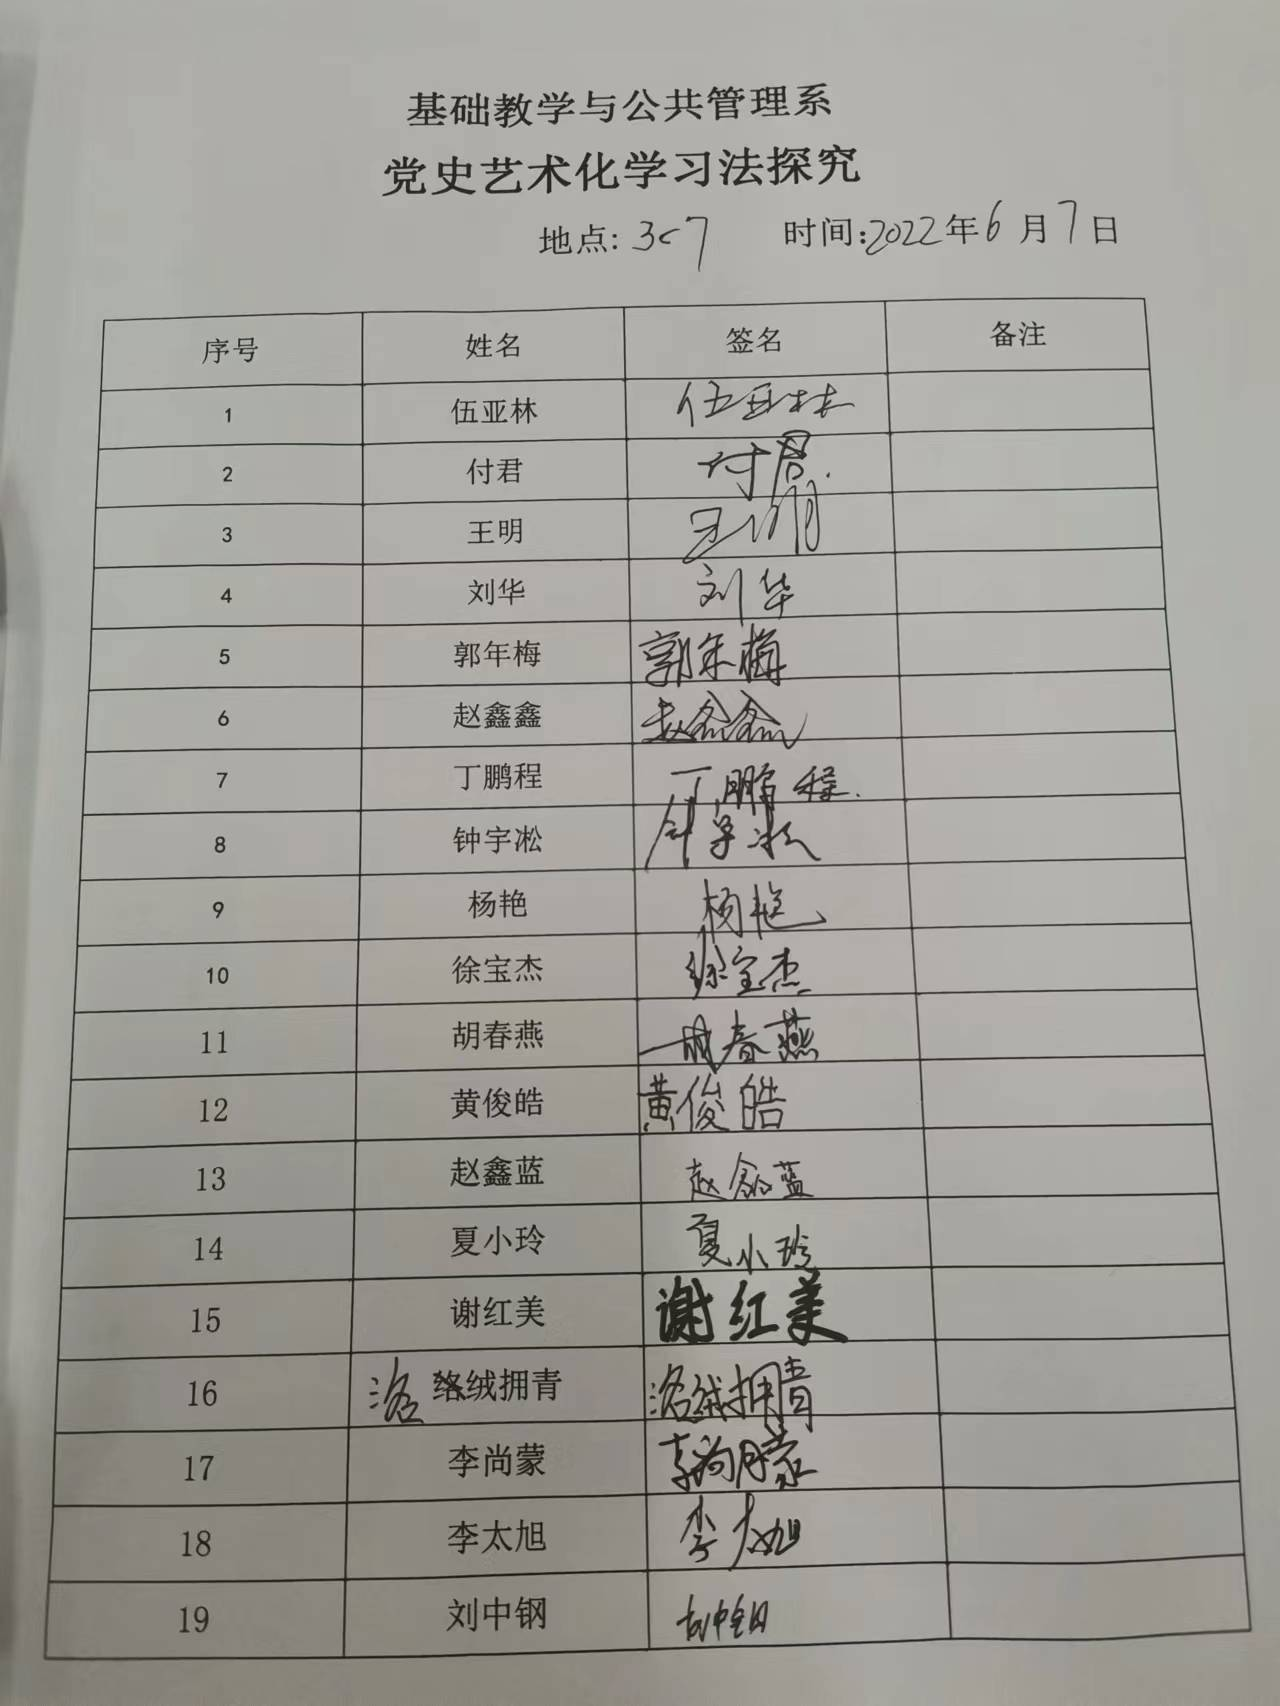 基础教学与公共管理系
党史艺术化学习法探究
地点: 307 时间:2022年6月7日
序号 姓名 签名 备注
1 伍亚林 伍亚林
2 付君 付君
3 王明 王明
4 刘华 刘华
5 郭年梅 郭年梅
6 赵鑫鑫 赵鑫鑫
7 丁鹏程 丁鹏程
8 钟宇凇 钟宇凇
9 杨艳 杨艳
10 徐宝杰 徐宝杰
11 胡春燕 胡春燕
12 黄俊皓 黄俊皓
13 赵鑫蓝 赵鑫蓝
14 夏小玲 夏小玲
15 谢红美 谢红美
16 洛 绒拥青 洛绒拥青
17 李尚蒙 李尚蒙
18 李太旭 李太旭
19 刘中钢 刘中钢